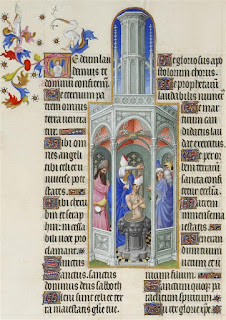 Te deum lau
damus te
dominum confitem̄.
Te eternum pa
trem omnis
terra venera
tur.
Tibi om
nes angeli
tibi celi et u
niverse pote
states.
Tibi cheru
bin et seraph
in: incessa
bili voce pro
clamant.
Sanctus.
Sanctus. sanctus
dominus deus sabaoth
Pleni sunt celi et ter
ra maiestatis glie tue.
Te gloriosus apo
stolorum chorus.
Te prophetarum
laudabilis nume
rus.
Te mar
tirum can
didatus lau
dat exercitus
Te per or
bem terrarum
sancta confi
tetur ecclesia.
Patrem
immense ma
iestatis
Veneran
dum tuum ve
rum et u
nicum filium.
Sanctum quoq pa
raclitum spiritum.
Tu rex glorie xpe.